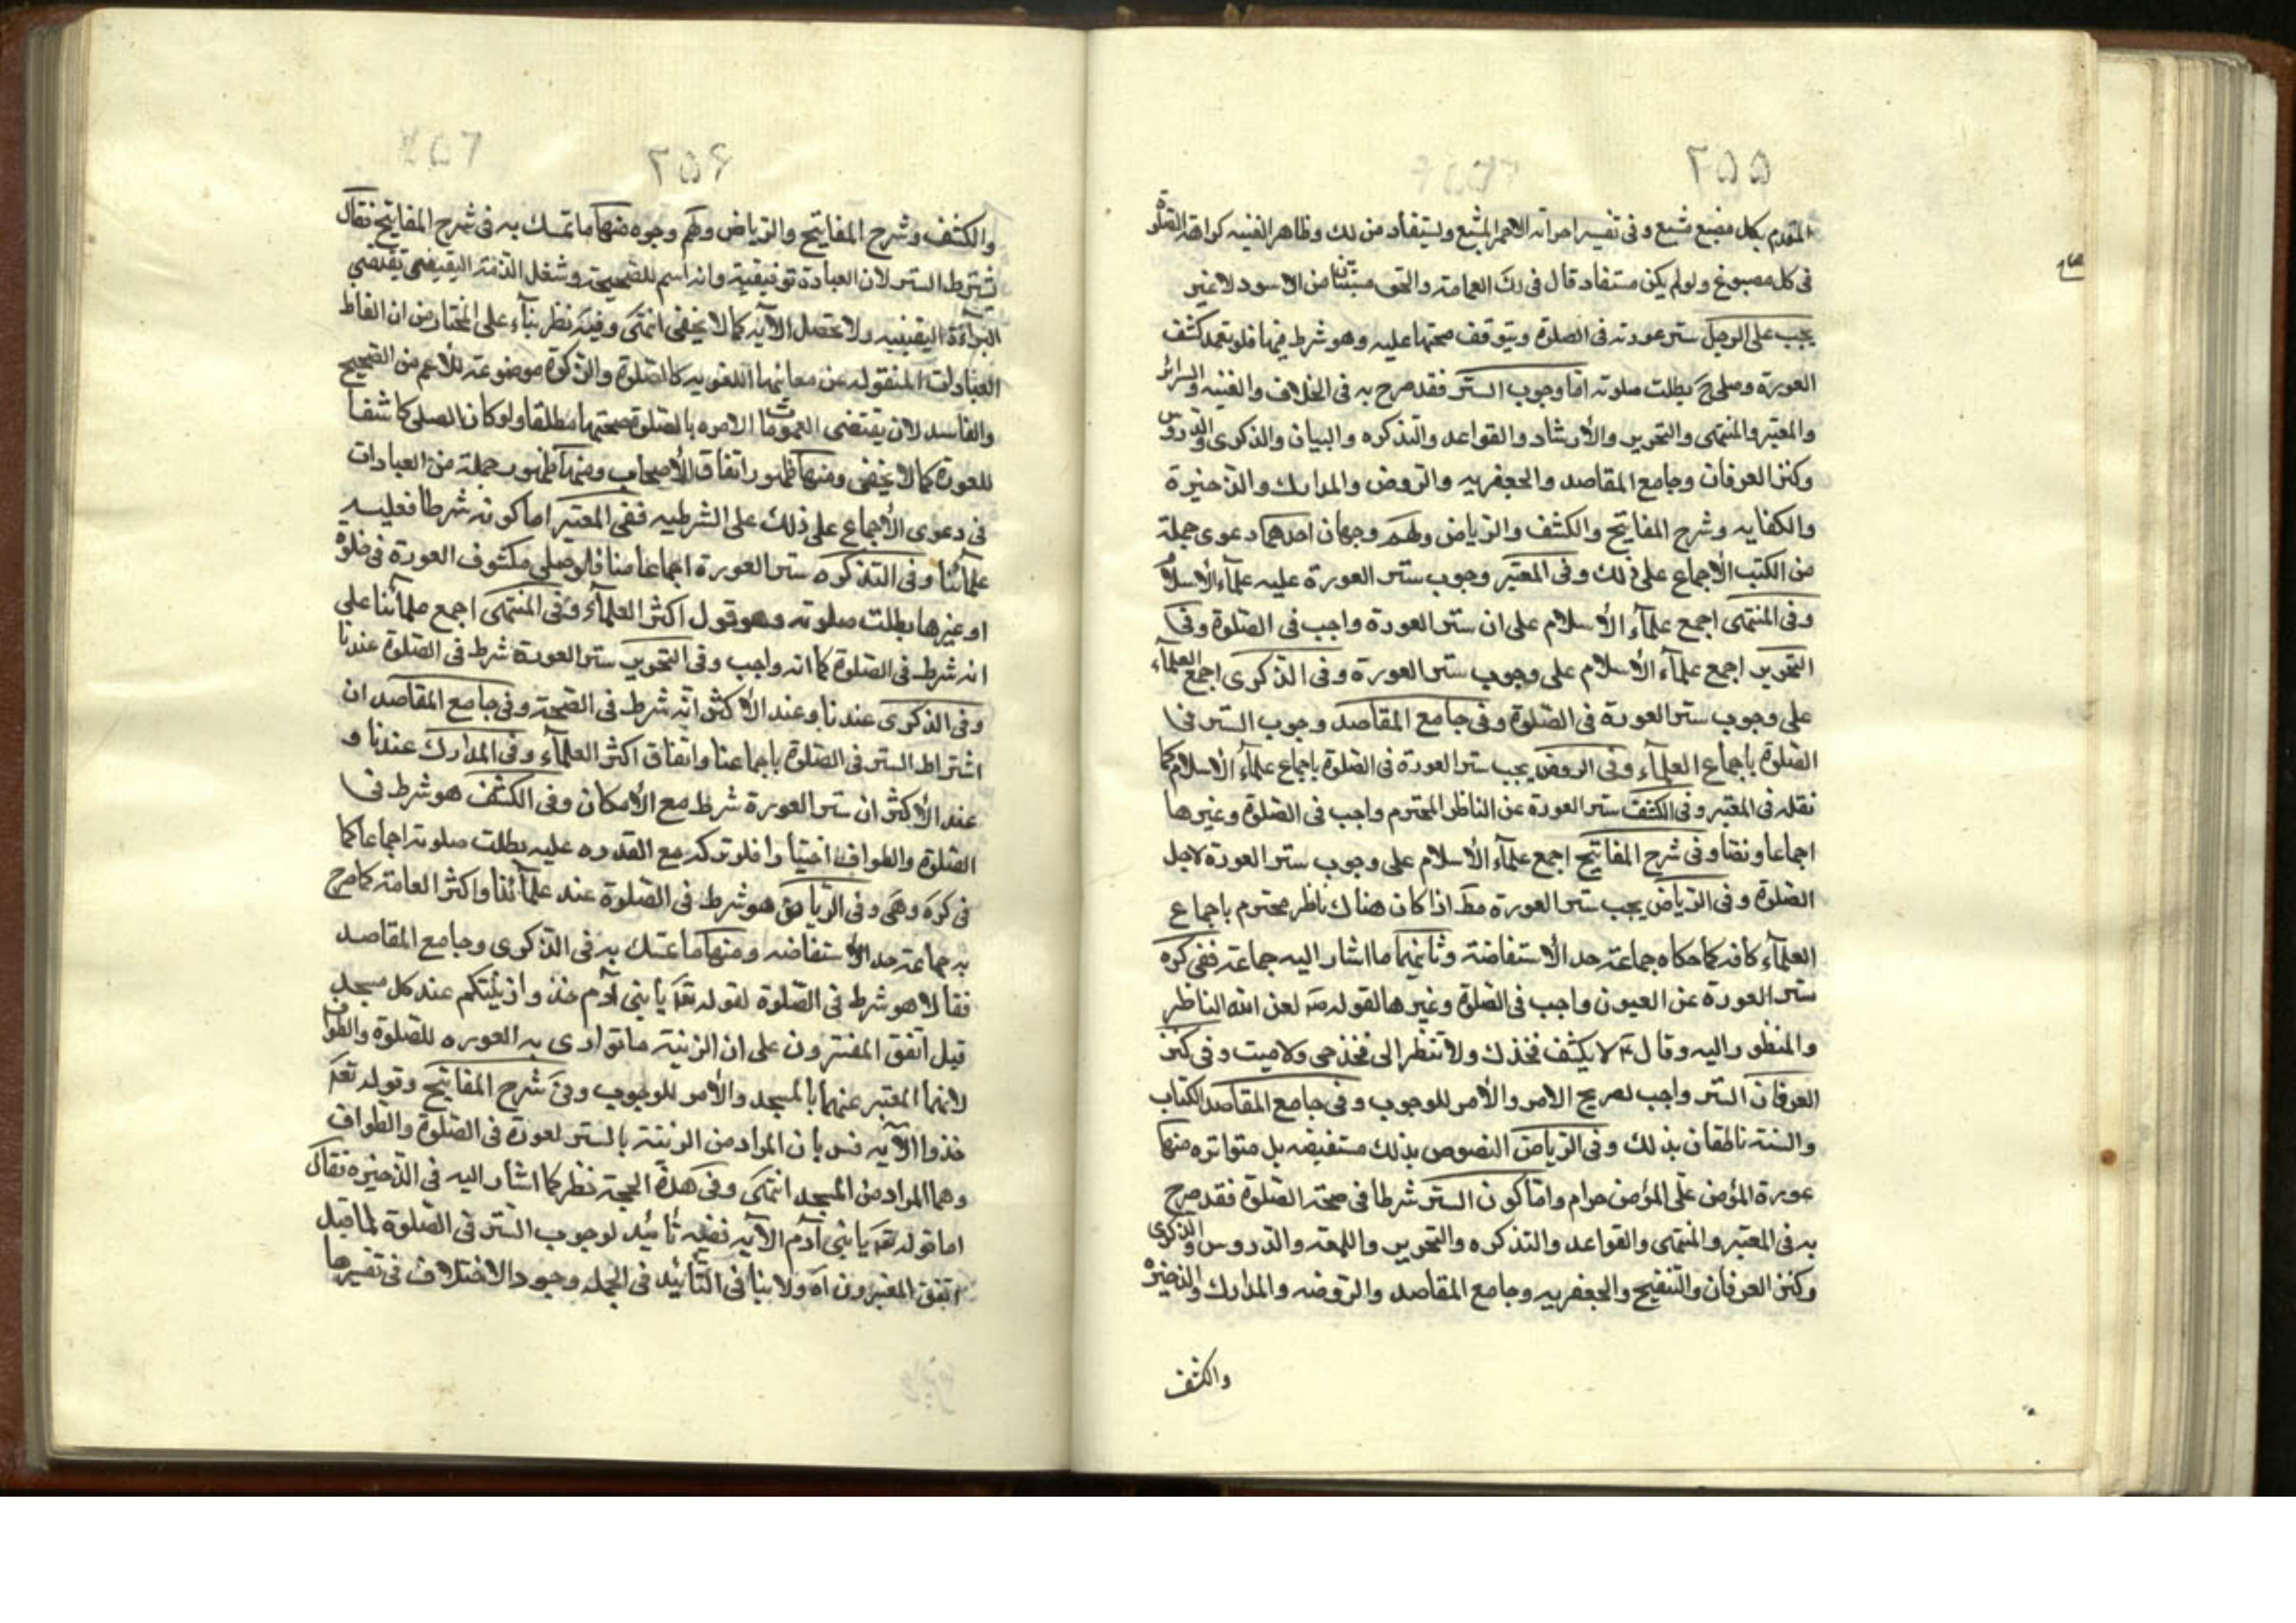 ٢٥٥
المقدم بكل مصبغ مشبع وفى تفسير احر انه الاحمر المشبع ويستفاد من لك وظاهر الغنيه كراهة الصلوة
فى كل مصبوغ ولو لم يكن مستفاد قال فى رك العمامة والخف مستثنا من الاسود لا غير
يجب على الرجل ستر عورته فى الصلوة ويتوقف صحتها عليه وهو شرط فيها فلو تعمد كشف
العورة وصلى ح بطلت صلوته اما وجوب الستر فقد صرح به فى الخلاف والغنيه والسرائر
والمعتبر والمنتهى والتحرير والأرشاد والقواعد والتذكره والبيان والذكرى والدروس
وكنز العرفان وجامع المقاصد والجعفريه والروض والمدارك والذخيرة
والكفايه وشرح المفاتيح والكشف والرياض ولهم وجهان احدهما دعوى جملة
من الكتب الأجماع على ذلك وفى المعتبر وجوب ستر العورة عليه علمآء الأسلام
وفى المنتهى اجمع علمآء الأسلام على ان ستر العورة واجب فى الصلوة وفى
التحرير اجمع علمآء الأسلام على وجوب ستر العورة وفى الذكرى اجمع العلمآء
على وجوب ستر العورة فى الصلوة وفى جامع المقاصد وجوب الستر فى
الصلوة باجماع العلمآء وفى الروض يجب ستر العورة فى الصلوة باجماع علمآء الأسلام كما
نقله فى المعتبر وفى الكشف ستر العورة عن الناظر المحترم واجب فى الصلوة وغيرها
اجماعا ونصا وفى شرح المفاتيح اجمع علمآء الأسلام على وجوب ستر العورة لاجل
الصلوة وفى الرياض يجب ستر العورة مط اذا كان هناك ناظر محترم باجماع
العلمآء كافه كما حكاه جماعة حد الأستفاضة وثانيهما ما اشار اليه جماعة ففى كره
ستر العورة عن العيون واجب فى الصلوة وغيرها لقوله ص لعن الله الناظر
والمنظور اليه وقال ع لا يكشف فخذك ولا تنظر الى فخذ حى ولا ميت وفى كنز
العرفان الستر واجب لصريح الامر والأمر للوجوب وفى جامع المقاصد الكتاب
والسنة ناطقان بذلك وفى الرياض النصوص بذلك مستفيضه بل متواتره منها
عورة المؤمن على المؤمن حرام واما كون الستر شرطا فى صحة الصلوة فقد صرح
به فى المعتبر والمنتهى والقواعد والتذكره والتحرير واللمعة والدروس والذكرى
وكنز العرفان والتنقيح والجعفريه وجامع المقاصد والروضه والمدارك والذخيرة
والكشف
٢٥۶
والكشف وشرح المفاتيح والرياض ولهم وجوه منها ما تمسك به فى شرح المفاتيح فقال
تشترط الستر لان العبادة توقيفية وانه اسم للصحيحة وشغل الذمة اليقينى يقتضى
البرآءة اليقينيه ولا تحصل الا به كما لا يخفى انتهى وفيه نظر بنآء على المختار من ان الفاظ
العبادات المنقوله عن معانيها اللغويه كالصلوة والزكوة موضوعة للأعم من الصحيح
والفاسد لان يقتضى العمومات الامره بالصلوة صحتها مطلقا ولو كان المصلى كاشفا
للعورة كما لا يخفى ومنها ظهور اتفاق الأصحاب ومنها ظهور جملة من العبادات
فى دعوى الأجماع على ذلك على الشرطيه ففى المعتبر اما كونه شرطا فعليه
علمآئنا وفى التذكره ستر العورة اجماعا منا فلو صلى مكشوف العورة فى خلوة
او غيرها بطلت صلوته وهو قول اكثر العلمآء وفى المنتهى اجمع علمآئنا على
انه شرط فى الصلوة كما انه واجب وفى التحرير ستر العورة شرط فى الصلوة عندنا
وفى الذكرى عندنا وعند الأكثر انه شرط فى الصحة وفى جامع المقاصد ان
اشتراط الستر فى الصلوة باجماعنا واتفاق اكثر العلمآء وفى المدارك عندنا و
عند الأكثر ان ستر العورة شرط مع الأمكان وفى الكشف هو شرط فى
الصلوة والطواف اختيارا فلو تركه مع القدره عليه بطلت صلوته اجماعا كما
فى كره وهى وفى الرياض هو شرط فى الصلوة عند علمآئنا واكثر العامة كما صرح
به جماعة حد الأستفاضه ومنها ما تمسك به فى الذكرى وجامع المقاصد
فقالا هو شرط فى الصلوة لقوله تعه يا بنى آدم خذوا زينتكم عند كل مسجد
قيل اتفق المفسرون على ان الزينة ما توارى به العوره للصلوة والطواف
لانهما المعتبر عنهما بالمسجد والأمر للوجوب وفى شرح المفاتيح وقوله تعه
خذوا الآيه فسر بان المراد من الزينة بالستر لعورة فى الصلوة والطواف
وهما المراد من المسجد انتهى وفى هذه الحجة نظر كما اشار اليه فى الذخيره فقال
اما قوله تعه يا بنى آدم الآيه ففيه تأئيد لوجوب الستر فى الصلوة لما قيل
اتفق المفسرون آه ولا ينافى التأئيد فى الجمله وجود الاختلاف فى تفسيرها